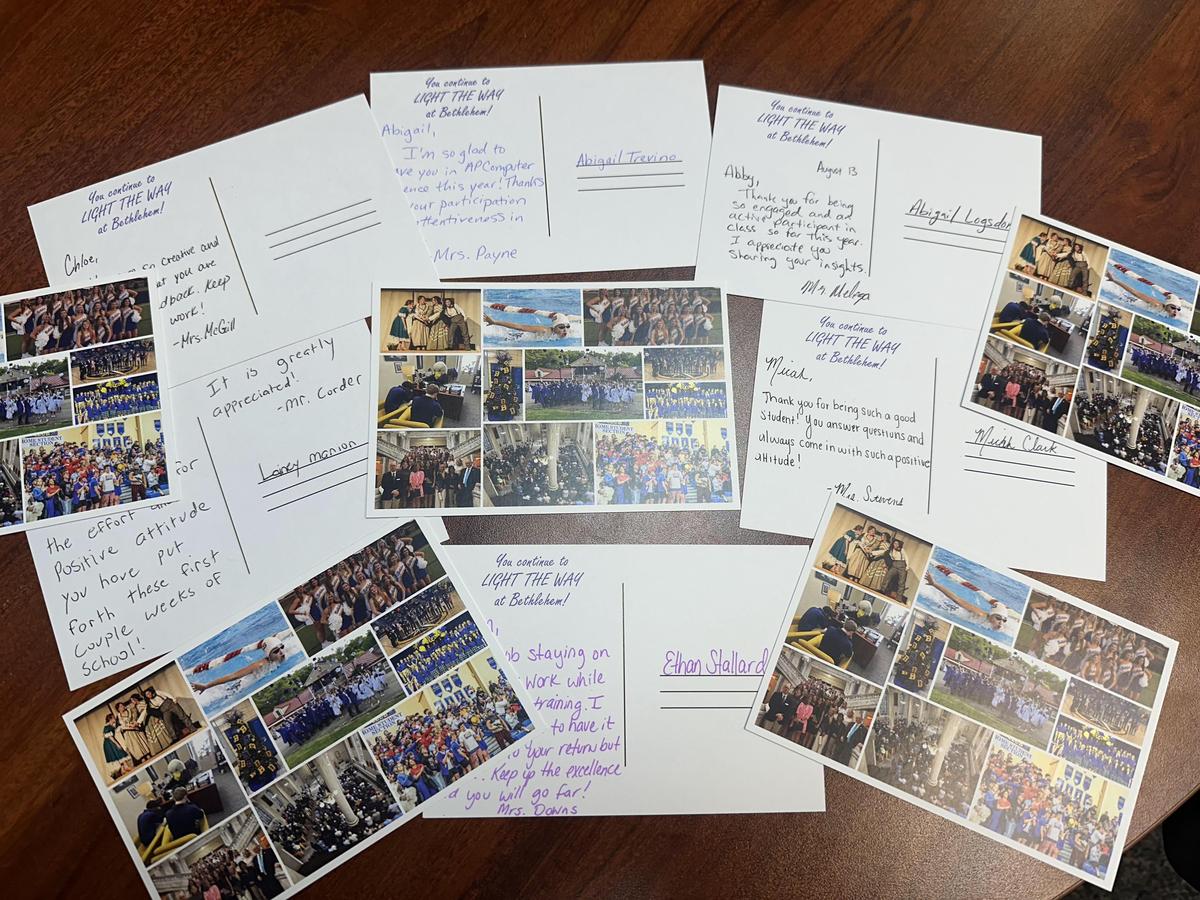 You continue to
LIGHT THE WAY
at Bethlehem!
Abigail,
I'm so glad to
you in AP Computer
this year! Thanks
your participation
in
Mrs. Payne
Abigail Trevino
You continue to
LIGHT THE WAY
at Bethlehem!
August 13
Abby,
Thank you for being
so engaged and an
active participant in
class so far this year.
I appreciate you
sharing your insights.
Abigail Logsdon
You continue to
LIGHT THE WAY
at Bethlehem!
Chloe,
so creative and
you are
Keep
work!
-Mrs. McGill
It is greatly
appreciated!
-Mr. Corder
Lainey Manion
the effort
Positive attitude
you have put
forth these first
couple weeks of
School!
You continue to
LIGHT THE WAY
at Bethlehem!
Micah,
Thank you for being such a good
student! You answer questions and
always come in with such a positive
attitude!
-Mrs. Stevens
Micah Clark
You continue to
LIGHT THE WAY
at Bethlehem!
staying on
work while
training. I
to have it
your return but
Keep up the excellence
you will go far!
Mrs. Downs
Ethan Stallard
HOME STUDENT
SECTION
HOME STUDENT
SECTION
HOME STUDENT
SECTION